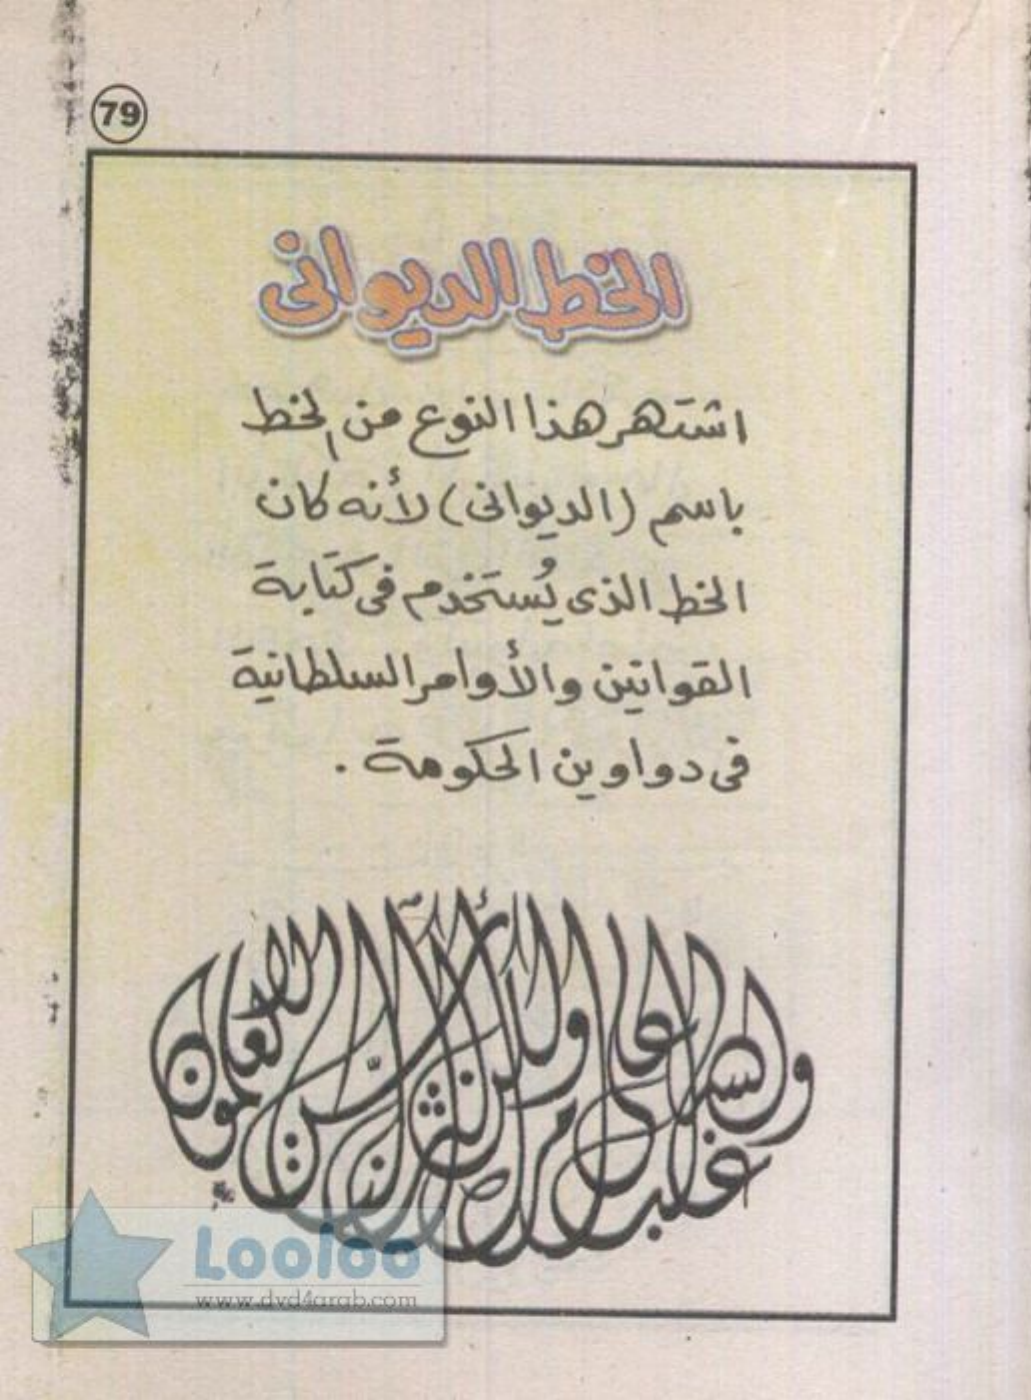 79
الخط الديوانى
اشتهر هذا النوع من الخط
باسم (الديوانى) لأنه كان
الخط الذى يُستَخدم فى كتابة
القوانين والأوامر السلطانية
فى دواوين الحكومة .
والله غالب على أمره ولكن أكثر الناس لا يعلمون
Looloo
www.dvd4arab.com